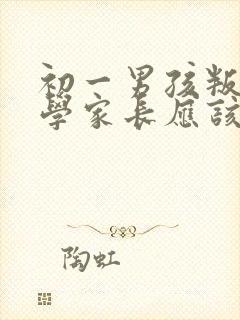 初一男孩叛
學家長應該
陶虹